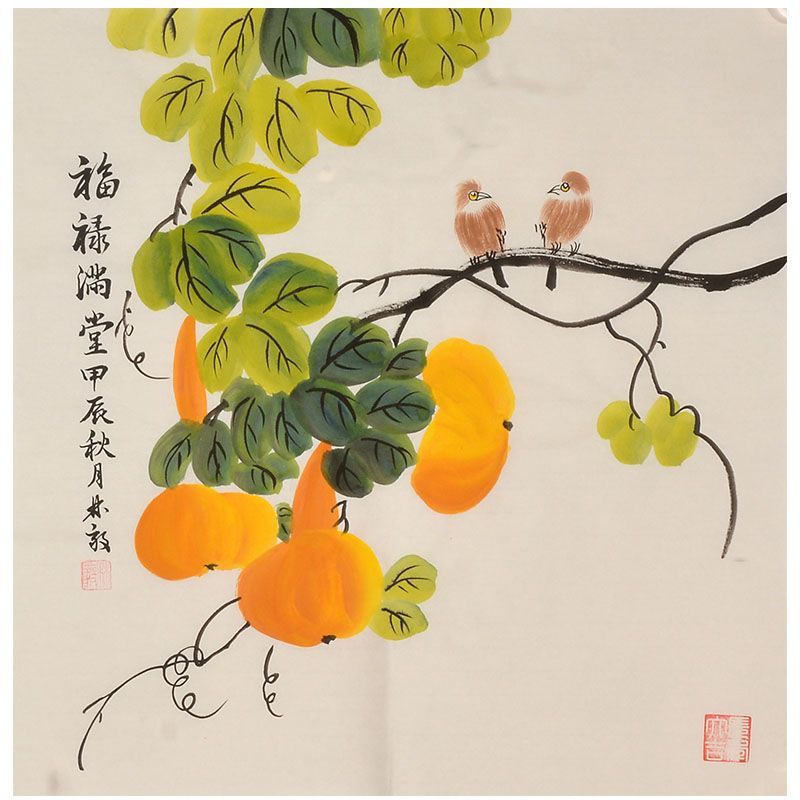 福禄满堂甲辰秋月林敬